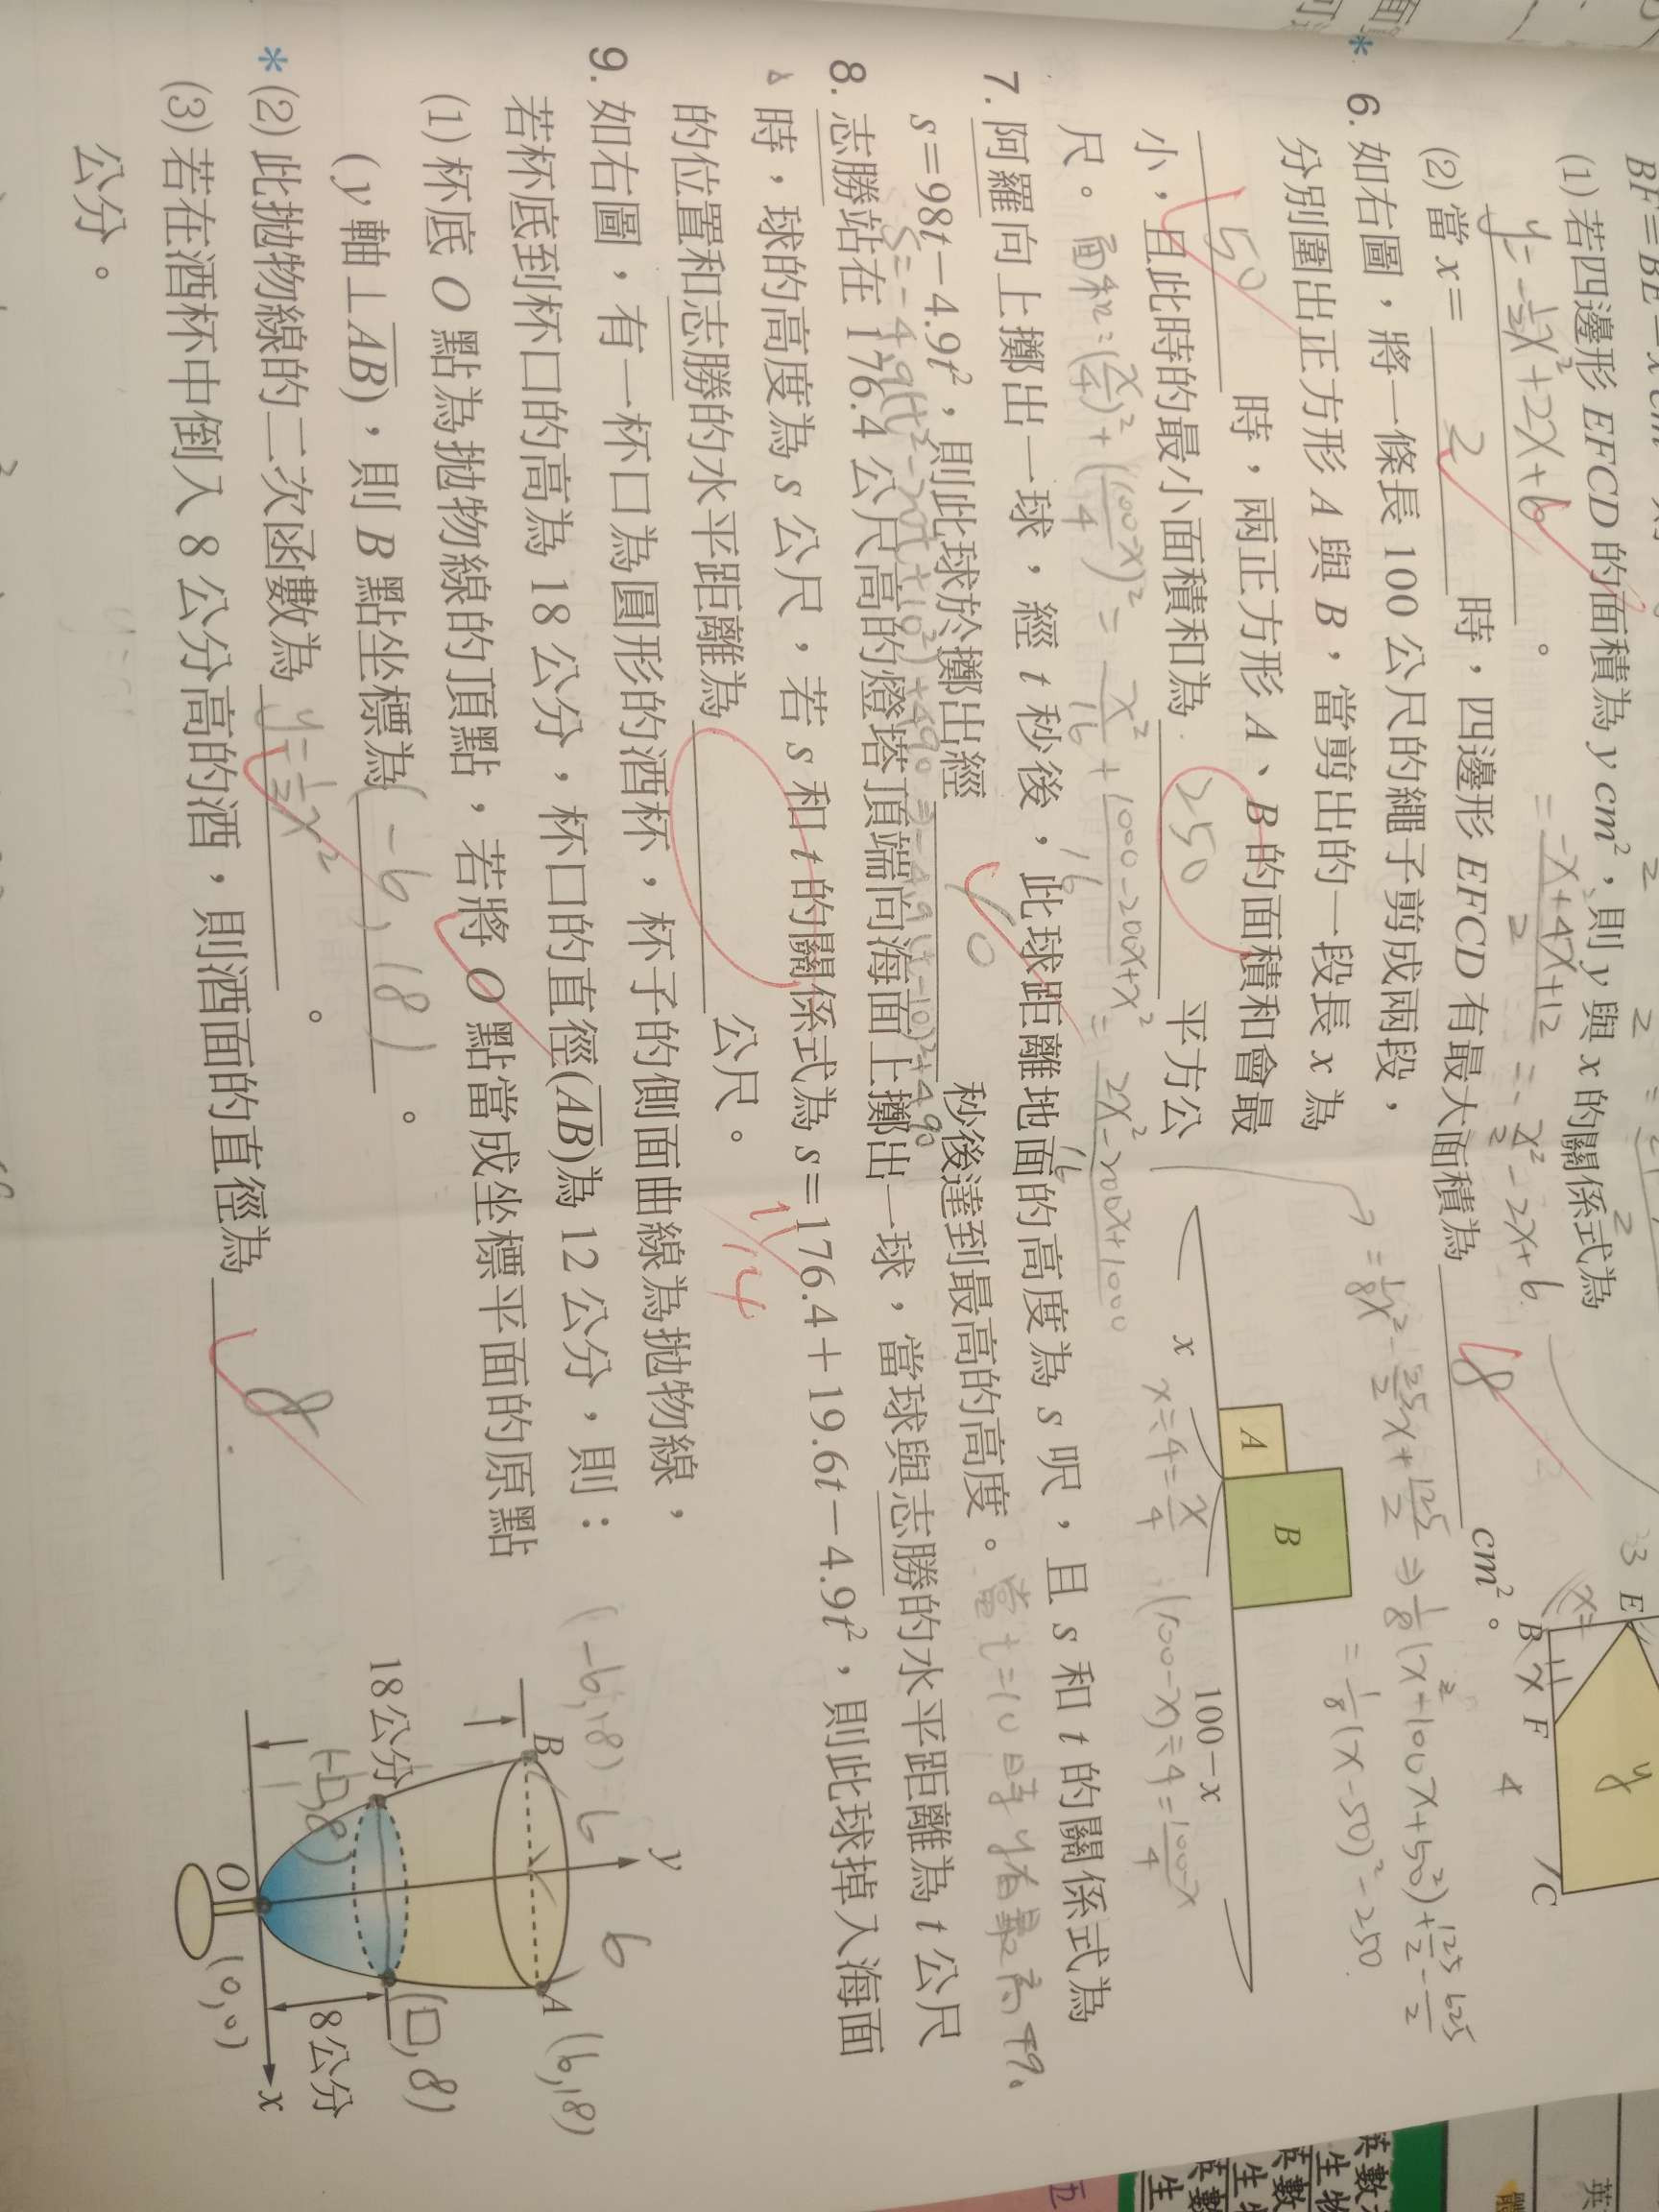 (1) 若四邊形 EFCD 的面積為 y cm²，則 y 與 x 的關係式為
y = -½x² + 2x + 6 。
= (-x+4x+12)/2 = -x²/2 - 2x + 6
(2) 當 x = 2 時，四邊形 EFCD 有最大面積為 8 cm²。
E
B x F
4
C
y
* 6. 如右圖，將一條長 100 公尺的繩子剪成兩段，
分別圍出正方形 A 與 B，當剪出的一段長 x 為
50 時，兩正方形 A、B 的面積和會最
小，且此時的最小面積和為 250 平方公
尺。
面積：(x/4)² + ((100-x)/4)² = x²/16 + (1000-200x+x²)/16 = (2x²-200x+1000)/16
= ⅛x² - 25/2 x + 125/2 ⇒ ⅛(x²+100x+50²) + 125/2 - 625/2
= ⅛(x-50)² - 250
A
B
x
100-x
x÷4=x/4
(100-x)÷4=(100-x)/4
7. 阿羅向上擲出一球，經 t 秒後，此球距離地面的高度為 s 呎，且 s 和 t 的關係式為
s=98t-4.9t²，則此球於擲出經 10 秒後達到最高的高度。
s=-4.9(t²-20t+10²)+490 ⇒ -4.9(t-10)²+490
當 t=10 時 y有最高 490
8. 志勝站在 176.4 公尺高的燈塔頂端向海面上擲出一球，當球與志勝的水平距離為 t 公尺
時，球的高度為 s 公尺，若 s 和 t 的關係式為 s=176.4+19.6t-4.9t²，則此球掉入海面
的位置和志勝的水平距離為 公尺。
1/14
9. 如右圖，有一杯口為圓形的酒杯，杯子的側面曲線為拋物線，
若杯底到杯口的高為 18 公分，杯口的直徑(AB)為 12 公分，則：
(1) 杯底 O 點為拋物線的頂點，若將 O 點當成坐標平面的原點
(y 軸⊥AB)，則 B 點坐標為 (-6, 18) 。
* (2) 此拋物線的二次函數為 y=½x² 。
(3) 若在酒杯中倒入 8 公分高的酒，則酒面的直徑為 8
公分。
y
(-6,18)
6
6
B
A (6,18)
18公分
(-□,8)
(□,8)
8公分
O
(0,0)
x